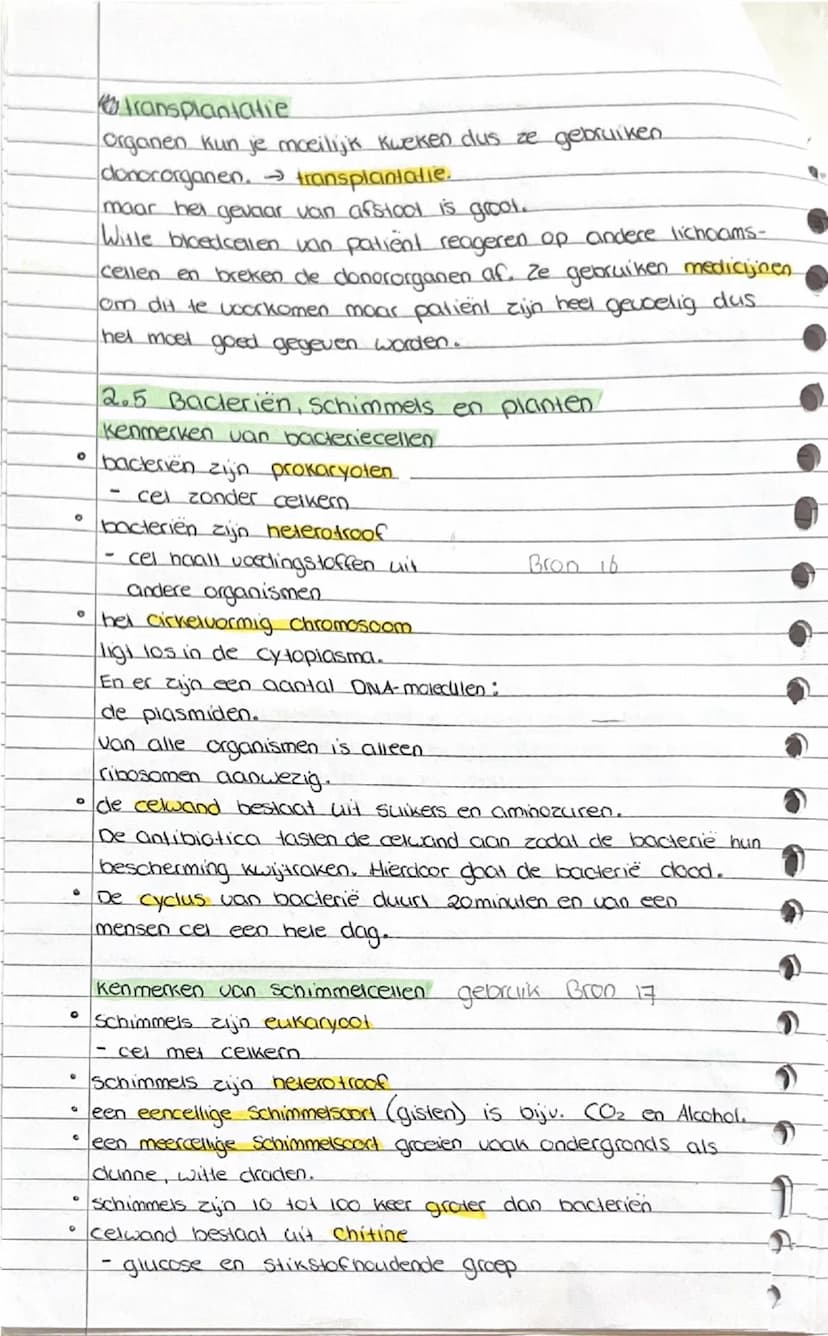 transplantatie
organen kun je moeilijk kweken dus ze gebruiken
donororganen. → transplantatie.
maar het gevaar van afstoot is groot.
Witte bloedcellen van patiënt reageren op andere lichaams-
cellen en breken de donororganen af. Ze gebruiken medicijnen
om dit te voorkomen maar patiënt zijn heel gevoelig dus
het moet goed gegeven worden.
2.5 Bacteriën, schimmels en planten
kenmerken van bacteriecellen
• bacteriën zijn prokaryoten
- cel zonder celkern
• bacteriën zijn heterotroof
- cel haalt voedingstoffen uit Bron 16
andere organismen
• het cirkelvormig chromosoom
ligt los in de cytoplasma.
En er zijn een aantal DNA-moleculen:
de plasmiden.
van alle organismen is alleen
ribosomen aanwezig.
• de celwand bestaat uit suikers en aminozuren.
De antibiotica tasten de celwand aan zodat de bacterië hun
bescherming kwijtraken. Hierdoor gaat de bacterië dood.
• De cyclus van bacterië duurt 20minuten en van een
mensen cel een hele dag.
kenmerken van schimmelcellen gebruik Bron 17
• schimmels zijn eukaryoot
- cel met celkern
• schimmels zijn heterotroof
• een eencellige schimmelsoort (gisten) is bijv. CO₂ en Alcohol.
• een meercellige schimmelsoort groeien vaak ondergronds als
dunne, witte draden.
• schimmels zijn 10 tot 100 keer groter dan bacteriën
• celwand bestaat uit chitine
- glucose en stikstofhoudende groep